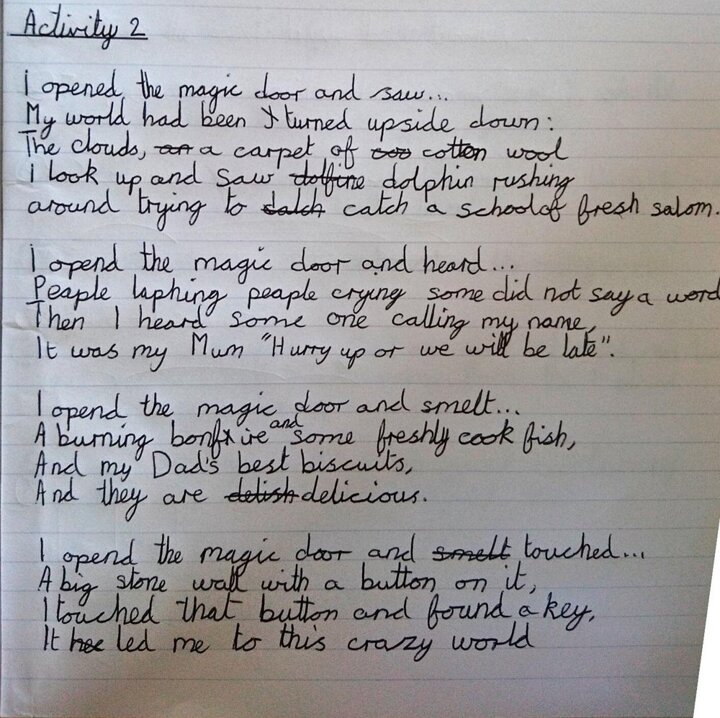 Activity 2
I opened the magic door and saw...
My world had been turned upside down:
The clouds, an a carpet of coo cotton wool
I look up and saw dolfine dolphin rushing
around trying to catch catch a school of fresh salom.
I opend the magic door and heard...
Peaple laphing peaple crying some did not say a word
Then I heard some one calling my name,
It was my Mum "Hurry up or we will be late".
I opend the magic door and smelt...
A burning bonfire and some freshly cook fish,
And my Dad's best biscuits,
And they are delish delicious.
I opend the magic door and smelt touched...
A big stone wall with a button on it,
I touched that button and found a key,
It led me to this crazy world